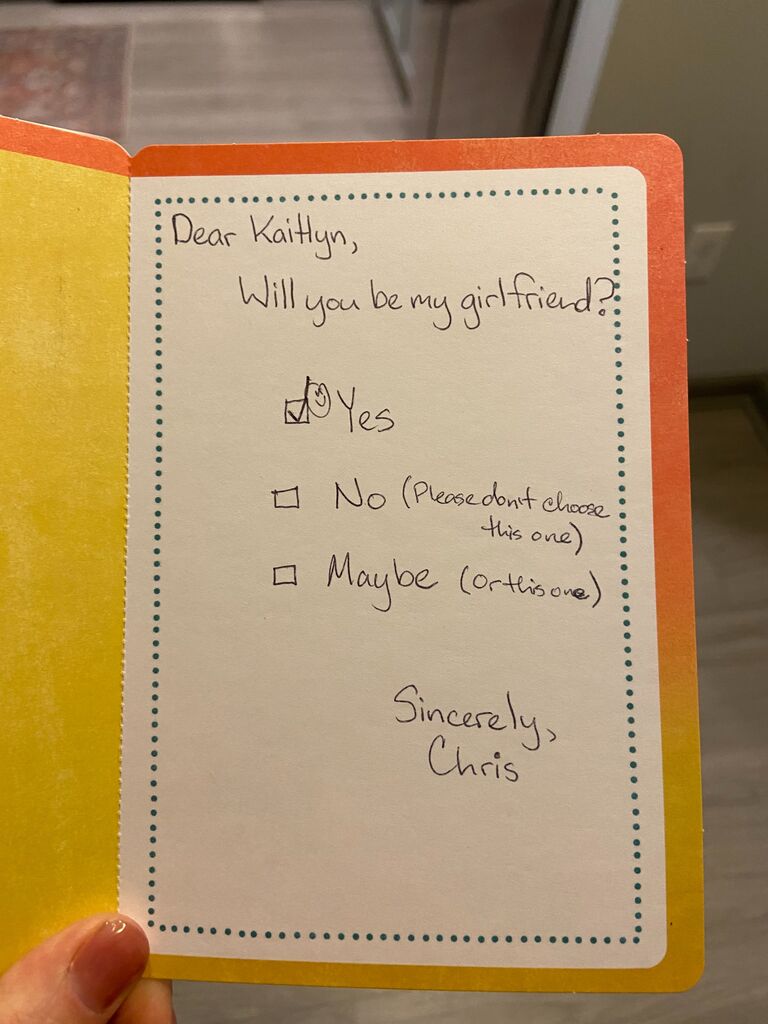 Dear Kaitlyn,
Will you be my girlfriend?
Yes
No (Please don't choose
this one)
Maybe (Or this one)
Sincerely,
Chris